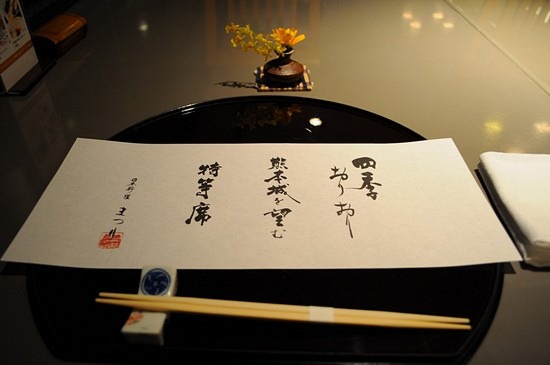 四季
おりおり
熊本城を望む
特等席
日本料理 まつり